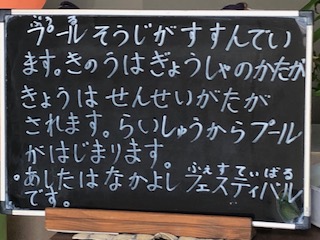 プールそうじがすすんでい
ます。きのうはぎょうしゃのかたが
きょうはせんせいがたが
されます。らいしゅうからプール
がはじまります。
。あしたはなかよしフェスティバル
です。
ぷうる
ふぇすてぃばる